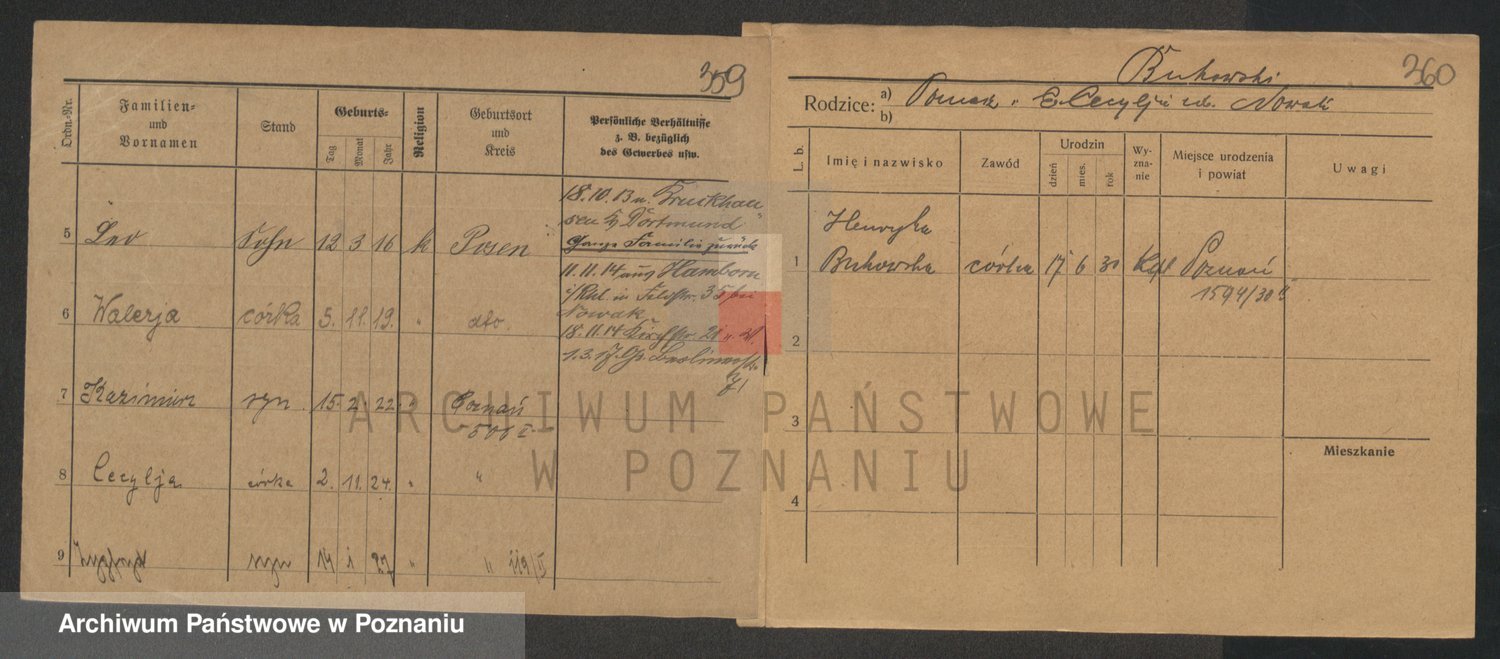 359
Ordn.-Nr.
Familien-
und
Vornamen
Stand
Geburts-
Tag
Monat
Jahr
Religion
Geburtsort
und
Kreis
Persönliche Verhältnisse
z. B. bezüglich
des Gewerbes usw.
5 Leo Sohn 12 3 16 k Posen
6 Walerja córka 5. 11. 19. " dto
7 Kazimierz syn 15. 2. 22. " Poznań
8 Cecylja córka 2. 11. 24. " "
9 Zygfryd syn 14 1 27 " " 119/II
18.10.13 n.
Dortmund
Ganze Familie zurück
11.11.14 aus Hamborn
35 bei
Nowak
18.11.14
1.3.17
360
Bukowski
Rodzice: a)
b)
Cecylja Nowak
L. b.
Imię i nazwisko
Zawód
Urodzin
dzień
mies.
rok
Wy-
zna-
nie
Miejsce urodzenia
i powiat
Uwagi
Henryka
1 Bukowska córka 17 6 30 Poznań
1594/30
2
3
4
Mieszkanie
ARCHIWUM PAŃSTWOWE
W POZNANIU
Archiwum Państwowe w Poznaniu